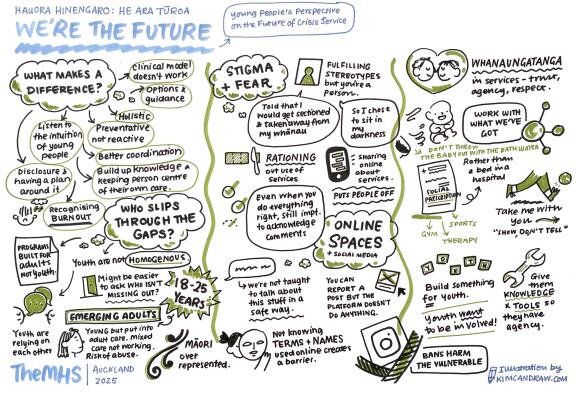 HAUORA HINENGARO: HE ARA TŪROA
WE'RE THE FUTURE
Young People's Perspective
on the Future of Crisis Service
WHAT MAKES A
DIFFERENCE?
Clinical model
doesn't work
Options &
guidance
Holistic
Preventative
not reactive
Listen to
the intuition
of young
people
Better coordination
Disclosure &
having a plan
around it
Build up knowledge &
keeping person centre
of their own care.
Recognising
BURNOUT
WHO SLIPS
THROUGH THE
GAPS?
PROGRAMS
BUILT FOR
adults
not youth.
Youth are not HOMOGENOUS
Might be easier
to ask WHO ISN'T
MISSING OUT?
18-25
YEARS
EMERGING ADULTS
Youth are
relying on
each other
YOUNG BUT PUT INTO
adult care. mixed
care not working.
Risk of abuse.
MĀORI
over
represented.
TheMHS
AUCKLAND
2025
STIGMA
+ FEAR
FULFILLING
STEREOTYPES
but you're a
Person.
Told that I
would get sectioned
& taken away from
my whānau
So I chose
to sit in
my
darkness
RATIONING
out use of
services
Sharing
online
about
services.
PUTS PEOPLE OFF
Even when you
do everything
right, still impt.
to acknowledge
comments
ONLINE
SPACES
+ SOCIAL MEDIA
we're not taught
to talk about
this stuff in a
safe way.
YOU CAN
REPORT A
POST BUT THE
PLATFORM DOESN'T
DO ANYTHING.
Not knowing
TERMS + NAMES
used online creates
a barrier.
WHANAUNGATANGA
in services - trust,
agency, respect.
WORK WITH
WHAT WE'VE
GOT
DON'T THROW
THE BABY OUT WITH THE BATH WATER
SOCIAL
PRESCRIPTION
Rather than
a bed in a
hospital
GYM
SPORTS
THERAPY
Take me with
you
"SHOW DON'T TELL"
YOUTH
Build something
for youth.
Youth want
to be involved!
Give
them
KNOWLEDGE
& TOOLS so
they have
agency.
BANS HARM
THE VULNERABLE
Illustration by
KIMCANDRAW.COM